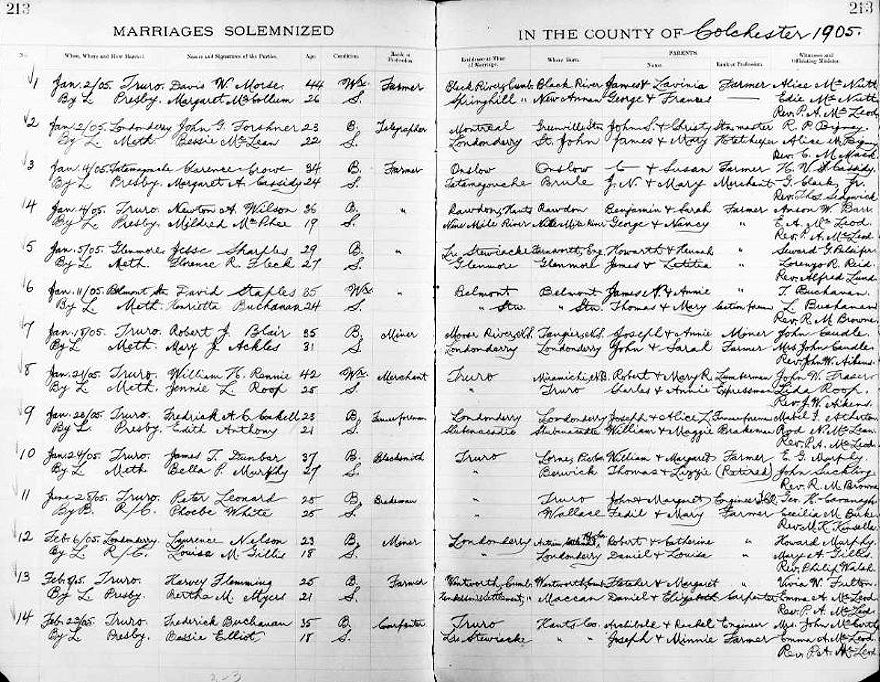 213
213
MARRIAGES SOLEMNIZED
IN THE COUNTY OF Colchester 1905.
No. When, Where and How Married. Names and Signatures of the Parties. Age Condition Rank or Profession. Residence at Time of Marriage. Where Born. PARENTS Name Rank or Profession. Witnesses and Officiating Minister.
1 Jan. 2/05. Truro. Davis W. Morse 44 Wr. Farmer Black River, Cumb. Black River James & Lavinia Farmer Alice McNutt
By L Presby. Margaret McCollum 26 S. Springhill " New Annan George & Frances — Edie McNutt
Rev. P. A. McLeod
2 Jan. 2/05. Londonderry John G. Forshner 23 B. Telegrapher Montreal John S. & Christy Stn master R. P.
By L. Meth. Bessie McLean 22 S. Londonderry St. John James & Mary Alice M.
Rev. C. M. Mack.
3 Jan. 4/05. Tatamagouche Clarence Crowe 34 B. Farmer Onslow Onslow C — & Susan Farmer H. W. Cassidy.
By L Presby. Margaret A. Cassidy 24 S. Tatamagouche Brule J. N. & Mary Merchant T. Clark, Jr.
Rev. Thos. Sedgwick
4 Jan. 4/05. Truro. Newton A. Wilson 36 B. " Rawdon, Hants Rawdon Benjamin & Sarah Farmer Anson W. Barr.
By L. Presby. Mildred McPhee 19 S. Nine Mile River Nine Mile River George & Nancy " E. A. McLeod.
Rev. P. A. McLeod.
5 Jan. 5/05. Glenmore Jesse Sharples 29 B. " Lr. Stewiacke Farnworth, Eng. Howarth & " Seward G.
By L. Meth. Florence R. Fleck 27 S. Glenmore Glenmore James & Letitia " Lorenzo R. Reid.
Rev. Alfred Lund.
6 Jan. 11/05 Belmont Stn David Staples 35 Wr. " Belmont Belmont James A. & Annie " T Buchanan.
By L Meth. Henrietta Buchanan 24 S. " Stn " Stn. Thomas & Mary Section foreman L Buchanan.
Rev. R. M. Browne.
7 Jan. 18/05. Truro. Robert J. Blair 35 B. Miner Moose River, N.S. Tangier, N.S. Joseph & Annie Miner John Caudle
By L Meth. Mary J. Ackles 31 S Londonderry Londonderry John & Sarah Farmer Mrs John Caudle.
Rev. John W. Aikens.
8 Jan. 21/05 Truro. William H. Rennie 42 Wr. Merchant Truro Miramichi, N.B. Robert & Mary R. Lumberman John W. Fraser
By L. Meth. Jennie L. Roop 25 S. " Truro Charles & Annie Expressman Lida Roop.
Rev. J. W. Aikens.
9 Jan. 20/05 Truro. Fredrick A. C. 23 B. Londonderry Londonderry Joseph & Alice L. Mabel F. Atherton
By L. Presby. Edith Anthony 21 S. Shubenacadie Shubenacadie William & Maggie Brakeman Rod N. McLean.
Rev. P. A. McLeod.
10 Jan. 24/05. Truro. James T. Dunbar 37 B. Blacksmith Truro Lorne, Pictou William & Margaret Farmer E. G. Murphy.
By L Meth Bella P. Murphy 27 S. " Berwick Thomas & Lizzie (Retired) John Suckling
Rev. R. M. Browne
11 Truro. Peter Leonard 25 B. Brakeman " Truro John & Margaret Engineer Geo. H. Cavanagh
By B. R/C. Phoebe White 25 S. " Wallace Fedil & Mary Farmer Cecilia M.
Rev. M. K.
12 Feb. 6/05. Londonderry Laurence Nelson 23 B. Miner Londonderry Robert & Catherine " Howard Murphy.
By L R/C. Louisa M Gillis 18 S. " Londonderry Daniel & Louisa " Mary A. Gillis.
Rev. Philip Walsh
13 Feb. 9/05. Truro. Harvey Flemming 25 B. Farmer Wentworth, Cumb. Wentworth, Cumb. Fletcher & Margaret " Vivia W. Fulton.
By L Presby. Bertha M. Myers 21 S. Settlement, " Maccan Daniel & Elizabeth Carpenter Emma A. McLeod
Rev. P. A. McLeod.
14 Feb. 22/05 Truro. Frederick Buchanan 35 B. Carpenter Truro Hants Co. Archibald & Rachel Engineer Mrs. John McCurdy
By L. Presby. Bessie Elliot 18 S. Lr. Stewiacke " " Joseph & Minnie Farmer Emma A. McLeod.
Rev. P. A. McLeod.